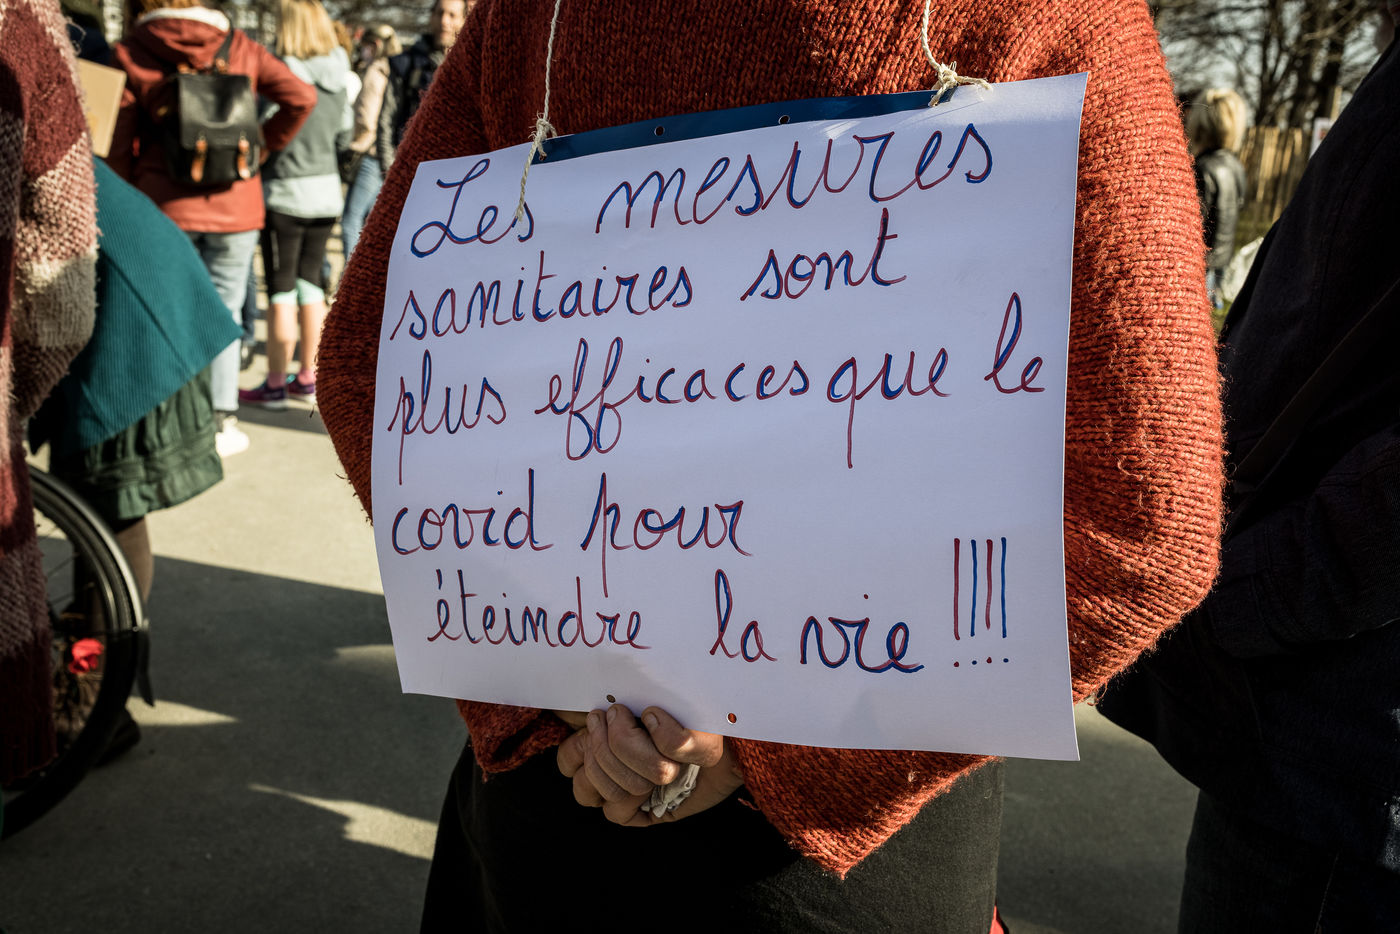 Les mesures
sanitaires sont
plus efficaces que le
covid pour
éteindre la vie !!!!